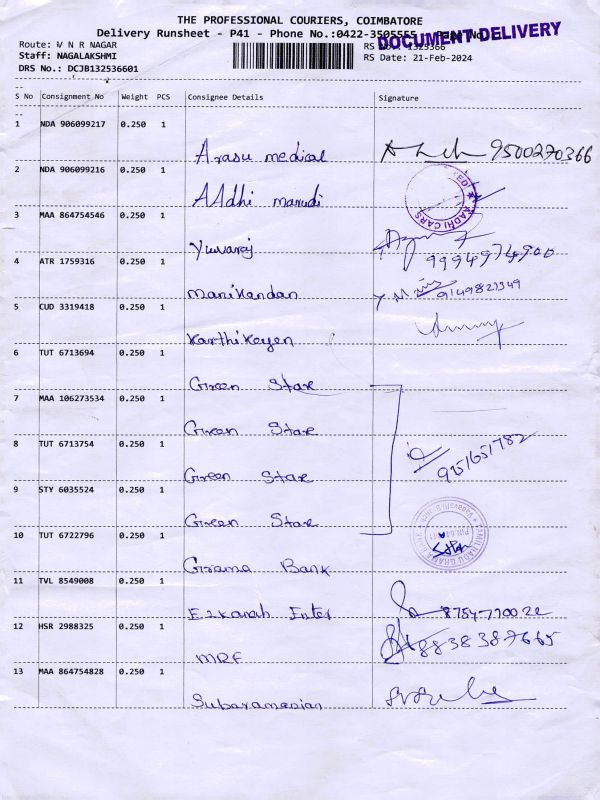 THE PROFESSIONAL COURIERS, COIMBATORE
Delivery Runsheet - P41 - Phone No.:0422-3505555
DOCUMENT DELIVERY
Route: V N R NAGAR
Staff: NAGALAKSHMI
DRS No.: DCJB132536601
RS No.: 1329366
RS Date: 21-Feb-2024
S No Consignment No Weight PCS Consignee Details Signature
1 NDA 906099217 0.250 1
Arasu medical 9500270366
2 NDA 906099216 0.250 1
AAdhi marudi
AADHI CARS
3 MAA 864754546 0.250 1
Yuvaraj 9994974900
4 ATR 1759316 0.250 1
Manikandan 9149821349
5 CUD 3319418 0.250 1
Karthikeyen
6 TUT 6713694 0.250 1
Green Star
7 MAA 106273534 0.250 1
Green Star
8 TUT 6713754 0.250 1
Green Star
9 STY 6035524 0.250 1
Green Star
10 TUT 6722796 0.250 1
Grama Bank
11 TVL 8549008 0.250 1
8754770022
12 HSR 2988325 0.250 1
MRF 8838387665
13 MAA 864754828 0.250 1
Subaramanian